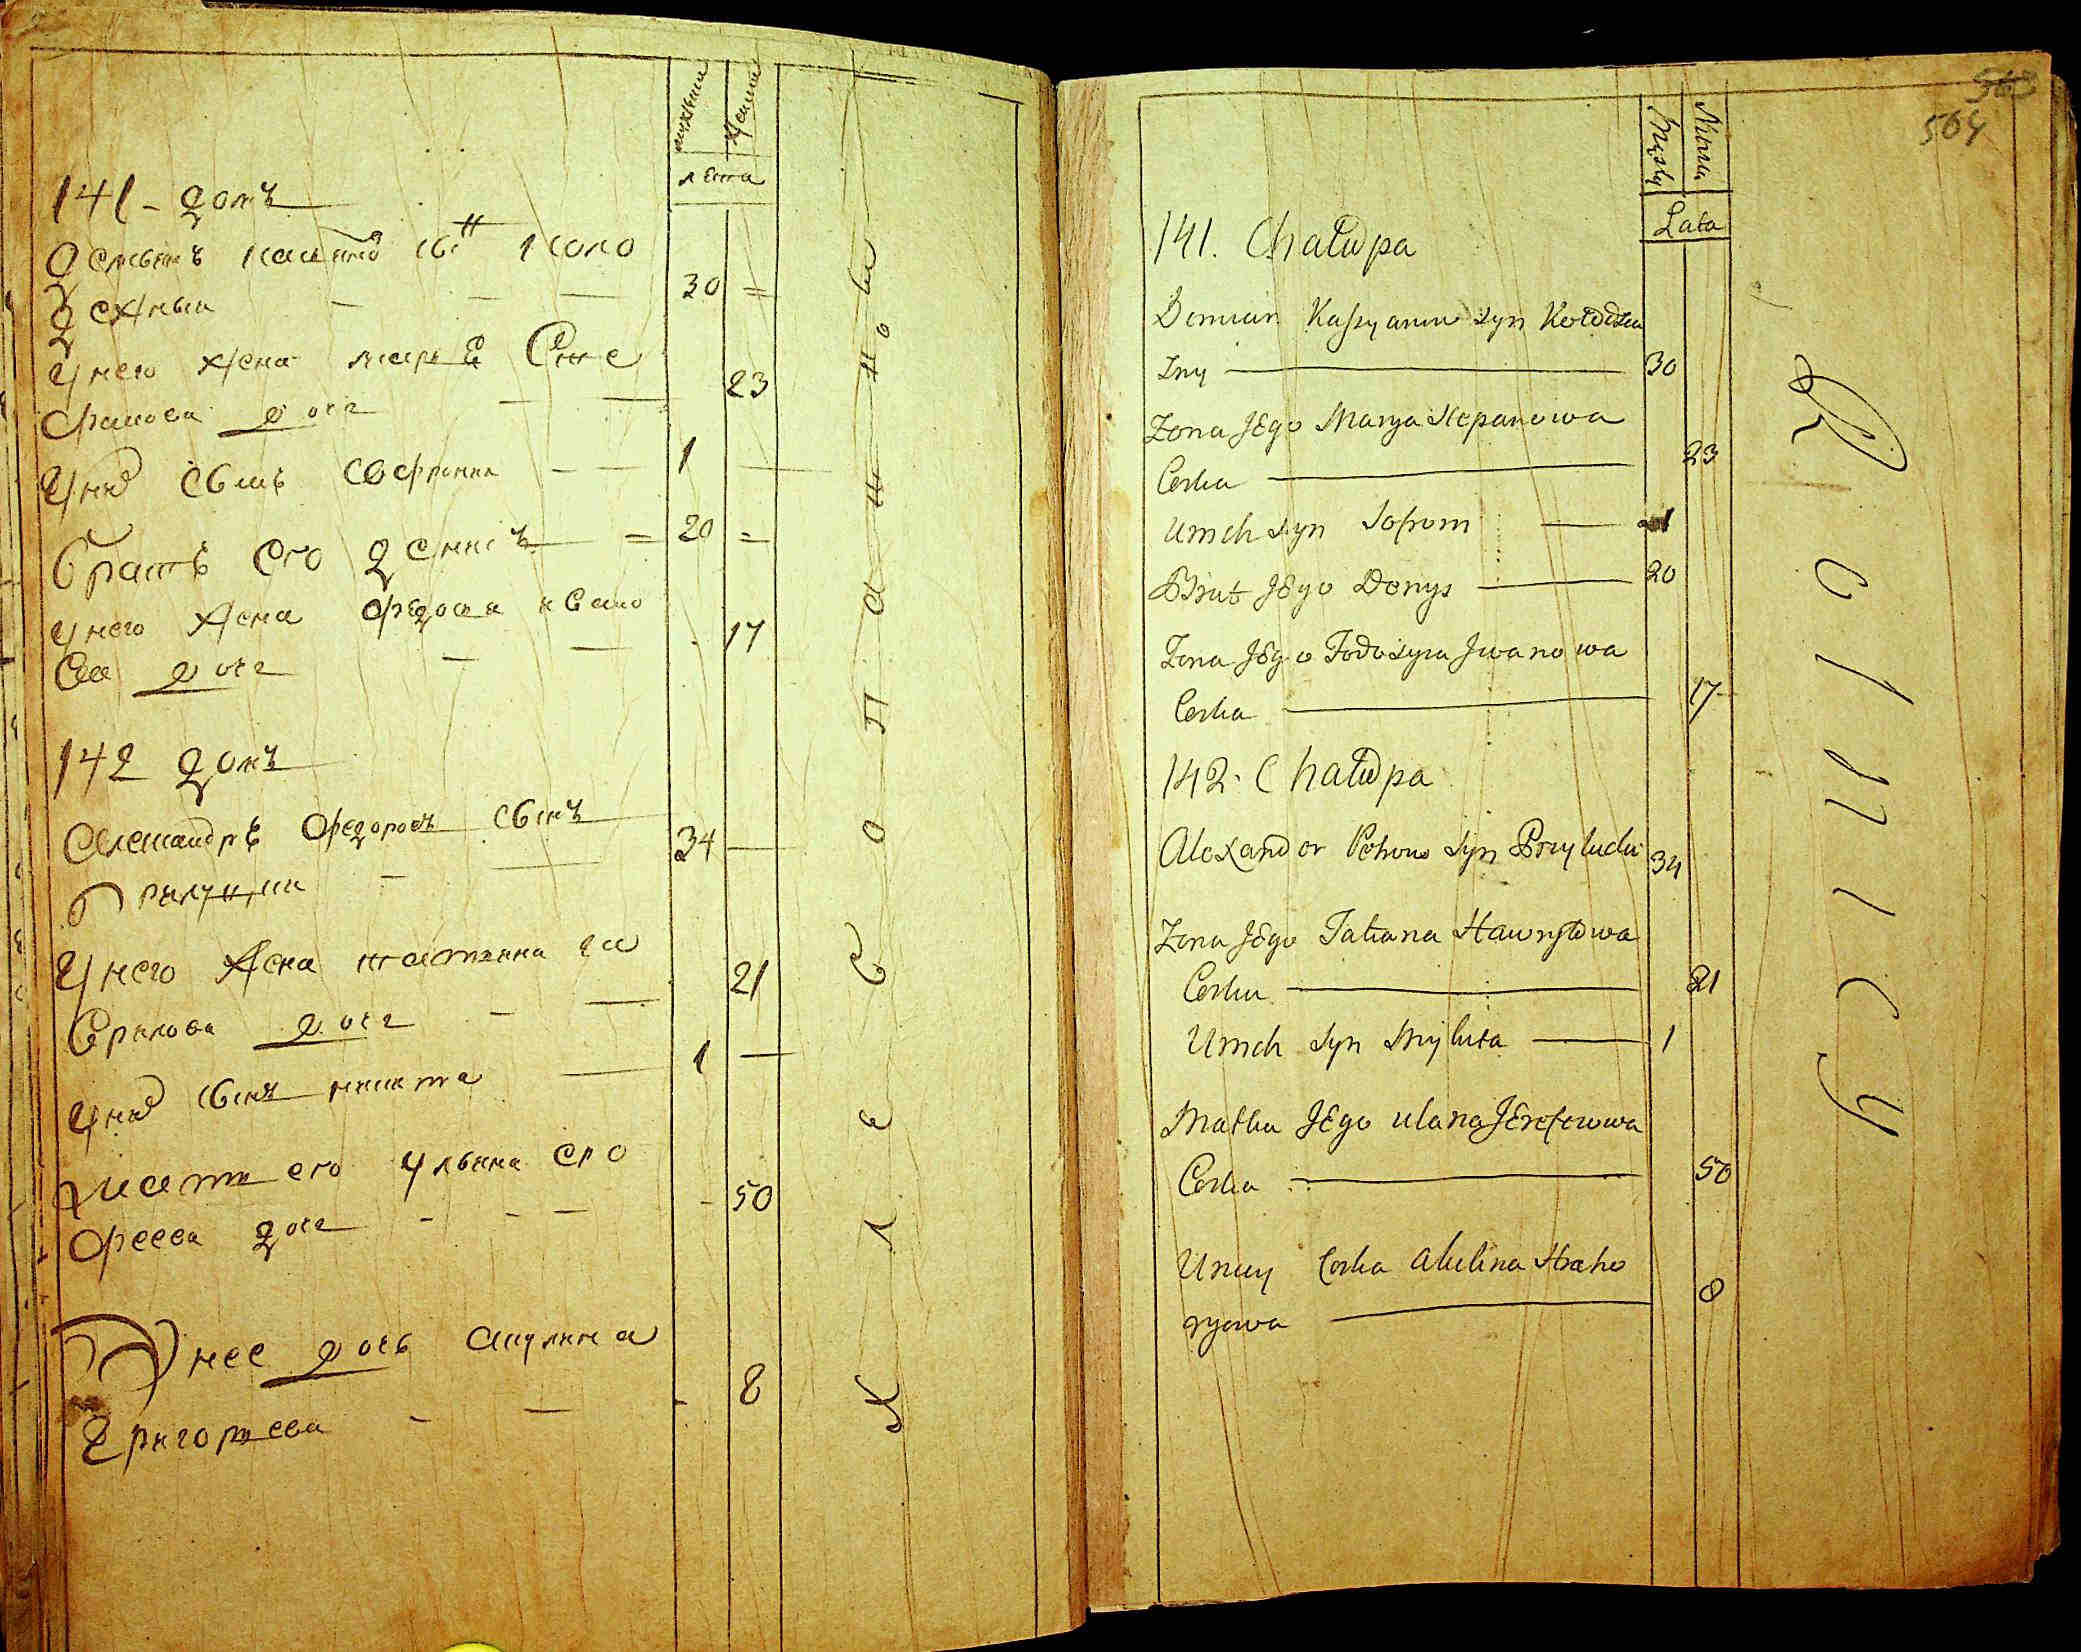 мужеска
женска
лета
141 - домъ
Демьянъ касьяновъ снъ коло
дежныи 30
У него жена марья Сте
фанова дочь 23
У них сынъ софронии 1
братъ его денисъ 20
У него жена федосья ивано
ва дочь 17
142 домъ
Александръ Федоровъ сынъ
Прилуцкии 34
У него жена татияна га
врилова дочь 21
У них сынъ никита 1
мать его ульяна еро
феева дочь 50
У нее дочь акулина
Григорьева 8
563
504
Męzka
Niewia
Lata
141. Chałupa
Demian Kaszyanow syn Kołodzia
zny 30
Zona Jego Marya Stepanowa
Corka 23
U nich syn Sofrom 1
Brat Jego Denys 20
Zona Jego Fodosyia Jwanowa
Corka 17
142. Chałupa
Alexander Petrow syn Pryłucki 34
Zona Jego Tatiana Hawryłowa
Corka 21
U nich syn Mykita 1
Matka Jego Ulana Jerefeiowa
Corka 50
U niey Corka Akulina Hreho
ryowa 8
Rolnicy